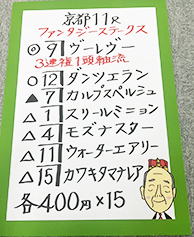 京都11R
ファンタジーステークス
◎ 9 ヴーレヴー
3連複1頭軸流
○ 12 ダンツエラン
▲ 7 カルプスペルシュ
△ 1 スリールミニョン
△ 4 モズナナスター
△ 11 ウォーターエアリー
△ 15 カワキタマナレア
各400円×15